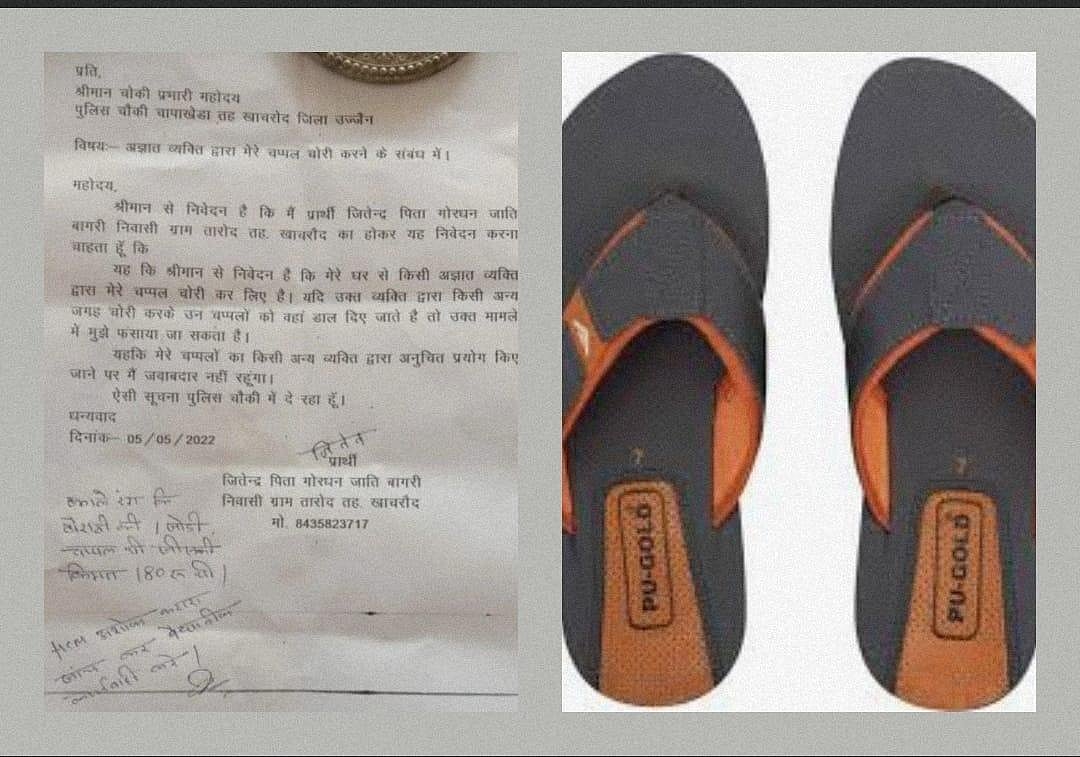 प्रति,
श्रीमान चोकी प्रभारी महोदय
पुलिस चौकी चापाखेडा तह खाचरोद जिला उज्जैन
विषयः– अज्ञात व्यक्ति द्वारा मेरे चप्पल चोरी करने के संबंध में।
महोदय,
श्रीमान से निवेदन है कि मैं प्रार्थी जितेन्द्र पिता गोरधन जाति
बागरी निवासी ग्राम तारोद तह. खाचरौद का होकर यह निवेदन करना
चाहता हूँ कि
यह कि श्रीमान से निवेदन है कि मेरे घर से किसी अज्ञात व्यक्ति
द्वारा मेरे चप्पल चोरी कर लिए है। यदि उक्त व्यक्ति द्वारा किसी अन्य
जगह चोरी करके उन चप्पलों को वहां डाल दिए जाते है तो उक्त मामले
में मुझे फसाया जा सकता है।
यहकि मेरे चप्पलों का किसी अन्य व्यक्ति द्वारा अनुचित प्रयोग किए
जाने पर मैं जवाबदार नहीं रहूंगा।
ऐसी सूचना पुलिस चौकी में दे रहा हूँ।
धन्यवाद
दिनांक– 05/05/2022
प्रार्थी
जितेन्द्र पिता गोरधन जाति बागरी
निवासी ग्राम तारोद तह. खाचरौद
मो. 8435823717
काले रंग कि
की 1 जोडी
चप्पल थी जीसकी
किमत 180 रु थी।
HCM अशोक कटारा
जांच कर वैधानिक
कार्यवाही करे।
7
PU-GOLD
7
PU-GOLD